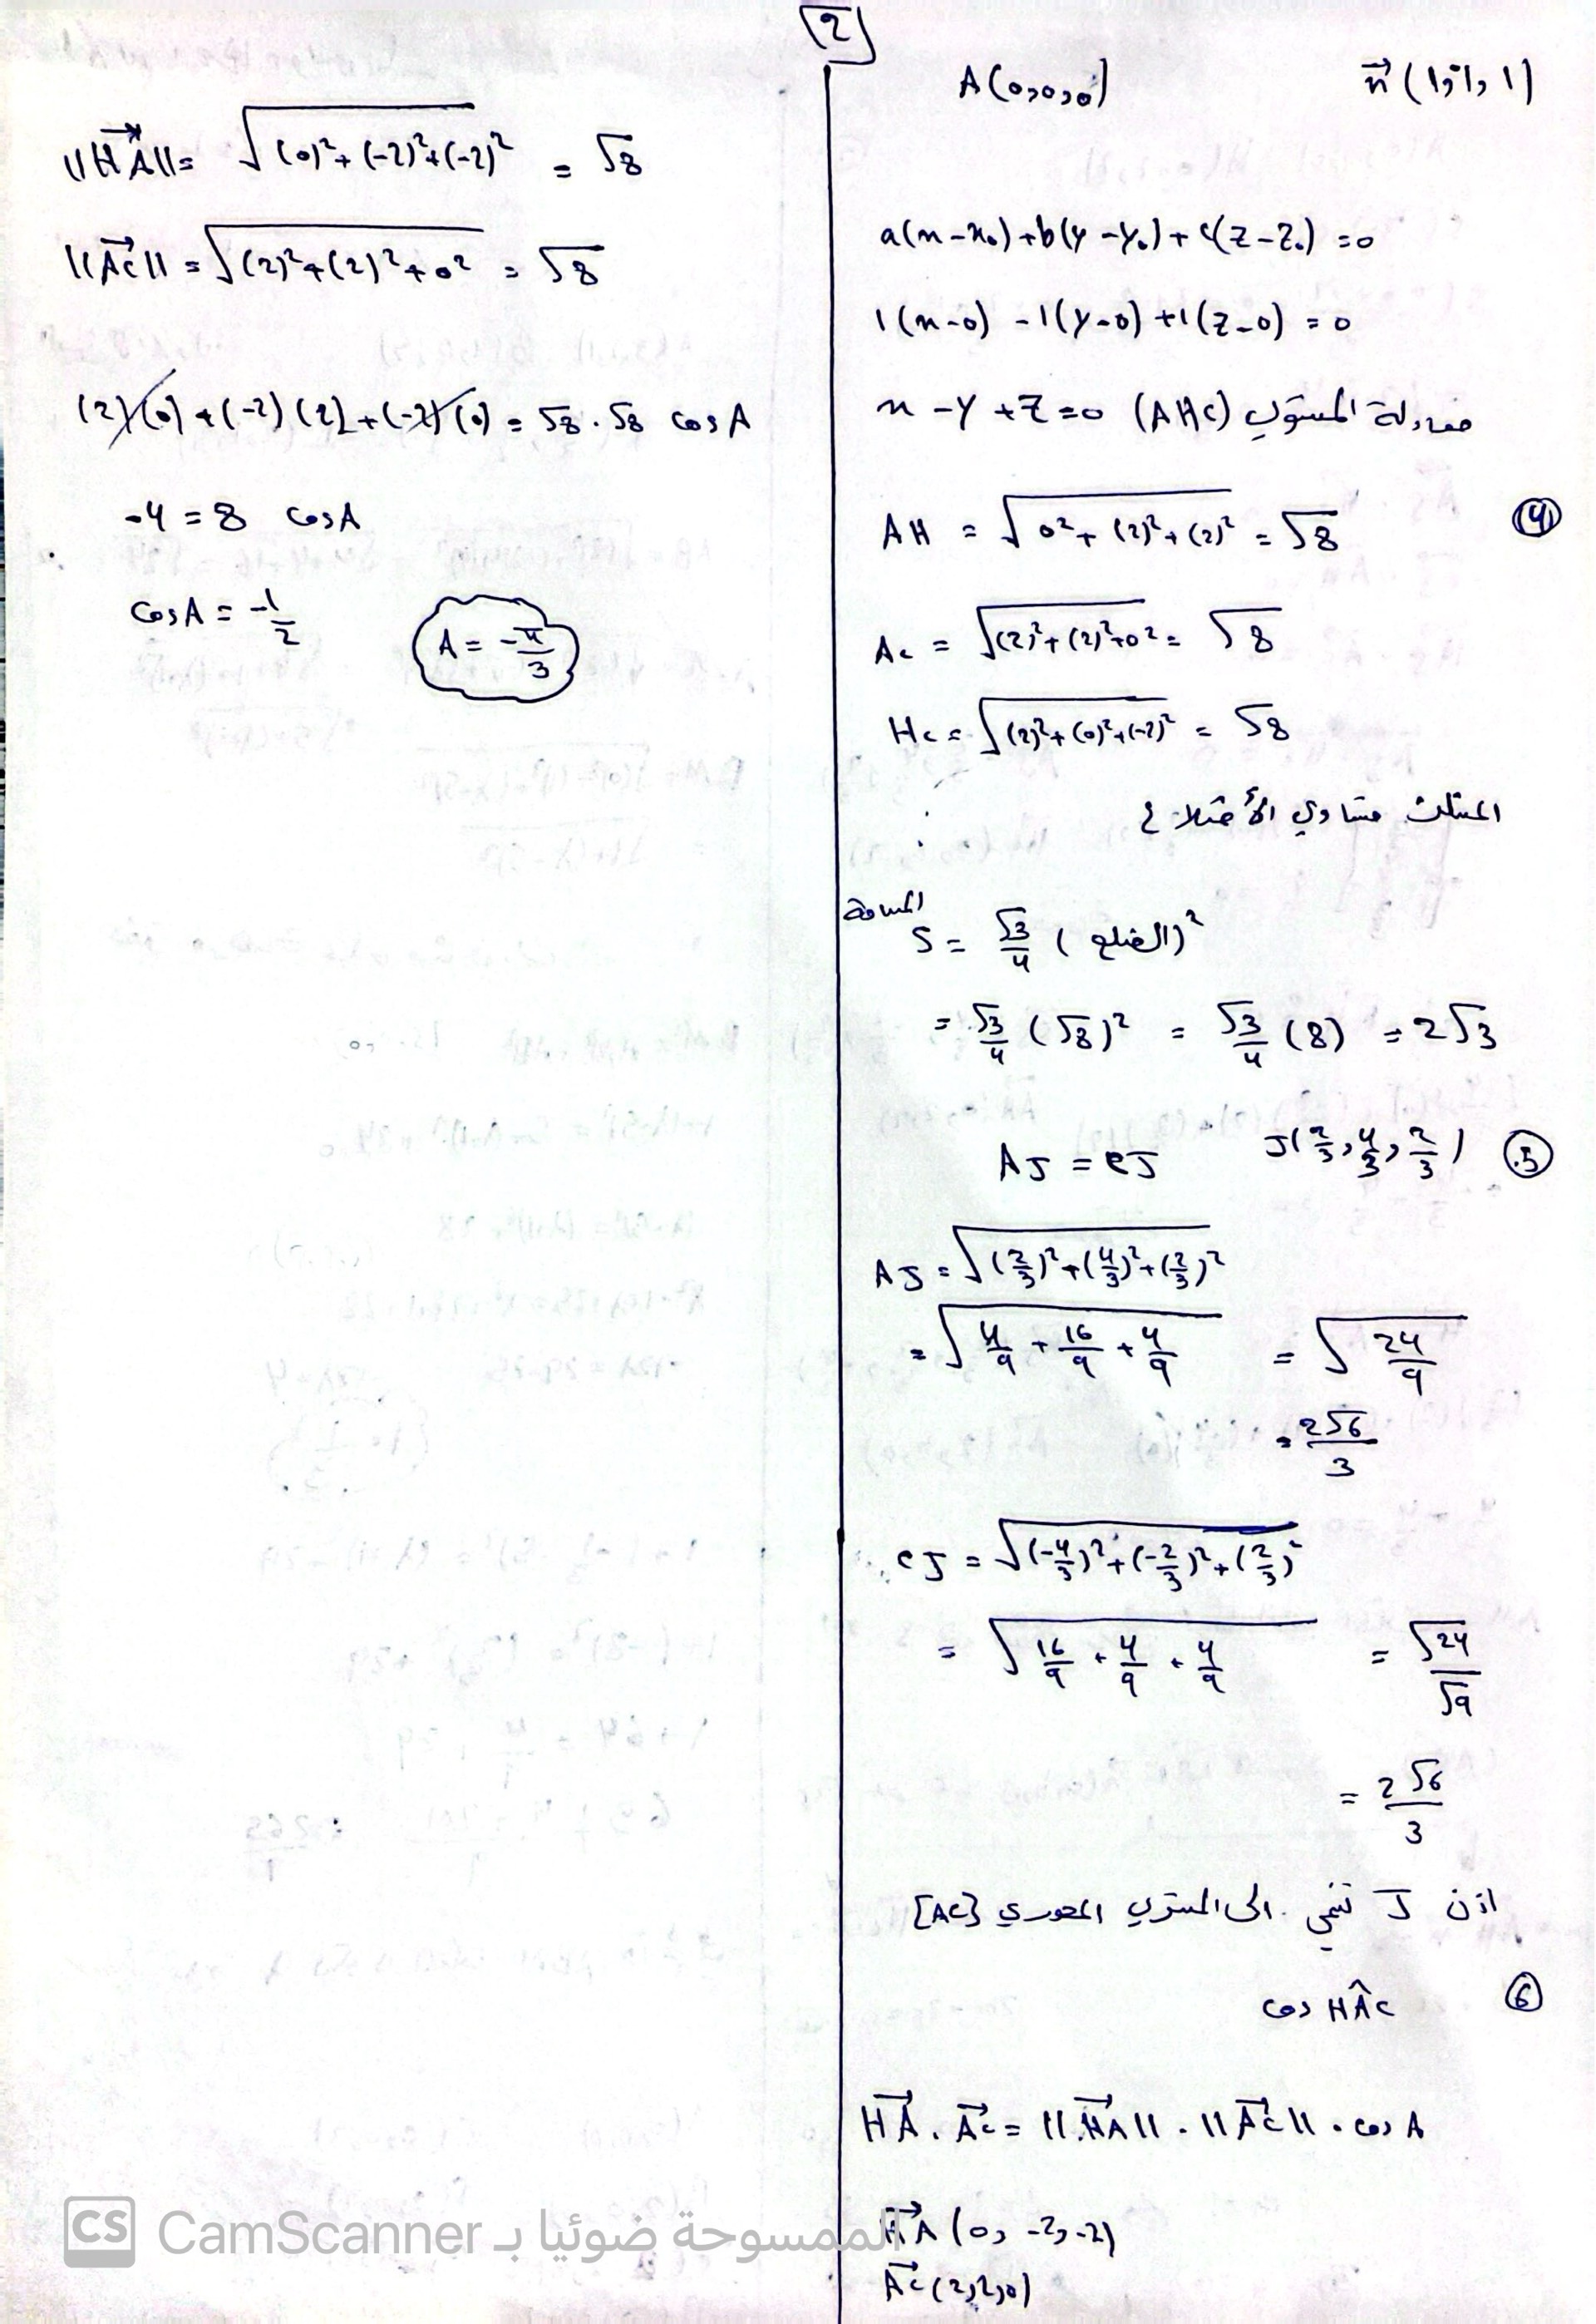 2
A(0,0,0) n⃗(1,-1,1)
a(x-x₀)+b(y-y₀)+c(z-z₀)=0
1(x-0) -1(y-0) +1(z-0) = 0
x-y+z=0 (AHC) معادلة المستوي
④ AH = √(0²+(2)²+(2)²) = √8
AC = √((2)²+(2)²+0²) = √8
HC = √((2)²+(0)²+(-2)²) = √8
المثلث متساوي الأضلاع
المساحة
S = √3/4 (الضلع)²
= √3/4 (√8)² = √3/4 (8) = 2√3
⑤ J(2/3, 4/3, 2/3) AJ = CJ
AJ = √((2/3)²+(4/3)²+(2/3)²)
= √(4/9 + 16/9 + 4/9) = √(24/9)
= 2√6/3
CJ = √((-4/3)²+(-2/3)²+(2/3)²)
= √(16/9 + 4/9 + 4/9) = √24/√9
= 2√6/3
اذن J تنتمي الى المستوي المحوري [AC]
⑥ cos HÂC
HA⃗ . AC⃗ = ||HA⃗|| . ||AC⃗|| . cos A
HA⃗ (0, -2, -2)
AC⃗ (2,2,0)
||HA⃗|| = √((0)²+(-2)²+(-2)²) = √8
||AC⃗|| = √((2)²+(2)²+0²) = √8
(2)(0)+(-2)(2)+(-2)(0) = √8 . √8 cos A
-4 = 8 cos A
cos A = -1/2
A = -π/3
CS CamScanner الممسوحة ضوئيا بـ